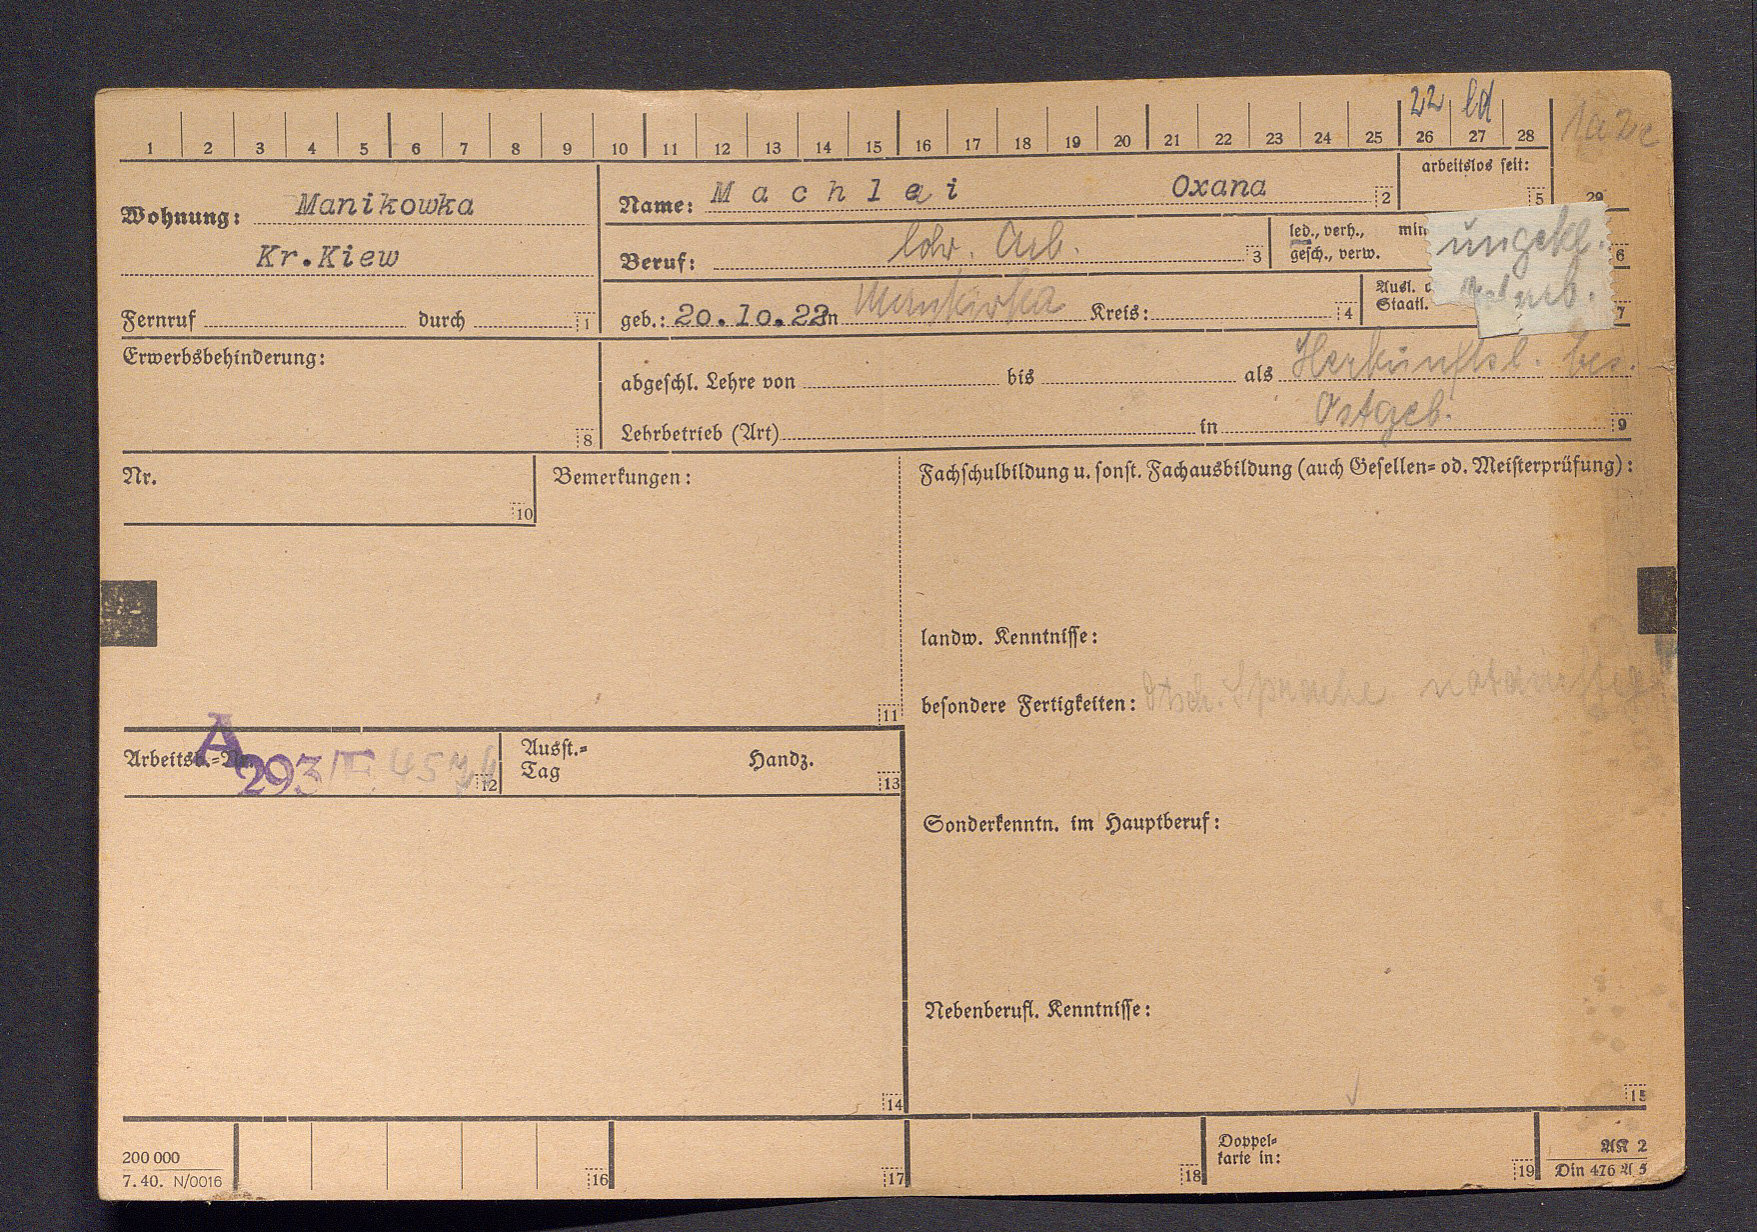 22 ld
1a 2c
1 2 3 4 5 6 7 8 9 10 11 12 13 14 15 16 17 18 19 20 21 22 23 24 25 26 27 28
29
Wohnung: Manikowka
Kr.Kiew
Fernruf durch 1
Name: Machlei Oxana 2
arbeitslos seit: 5
Beruf: ldw. Arb. 3
led., verh.,
gesch., verw.
ungekl.
6
geb.: 20.10.22 in Kreis: 4
Ausl.
Staatl.
7
Erwerbsbehinderung:
8
abgeschl. Lehre von bis als Herkunftsl. bes.
Ostgeb.
Lehrbetrieb (Art) in 9
Nr.
10
Bemerkungen:
11
Fachschulbildung u. sonst. Fachausbildung (auch Gesellen- od. Meisterprüfung):
landw. Kenntnisse:
besondere Fertigkeiten: Dtsch. Sprache notdürftig
Arbeitsb.-Nr. 12
A
293
Ausst.-
Tag
Handz.
13
Sonderkenntn. im Hauptberuf:
Nebenberufl. Kenntnisse:
14
15
200 000
7. 40. N/0016
16
17
18
Doppel-
karte in:
19
AK 2
Din 476 A 5